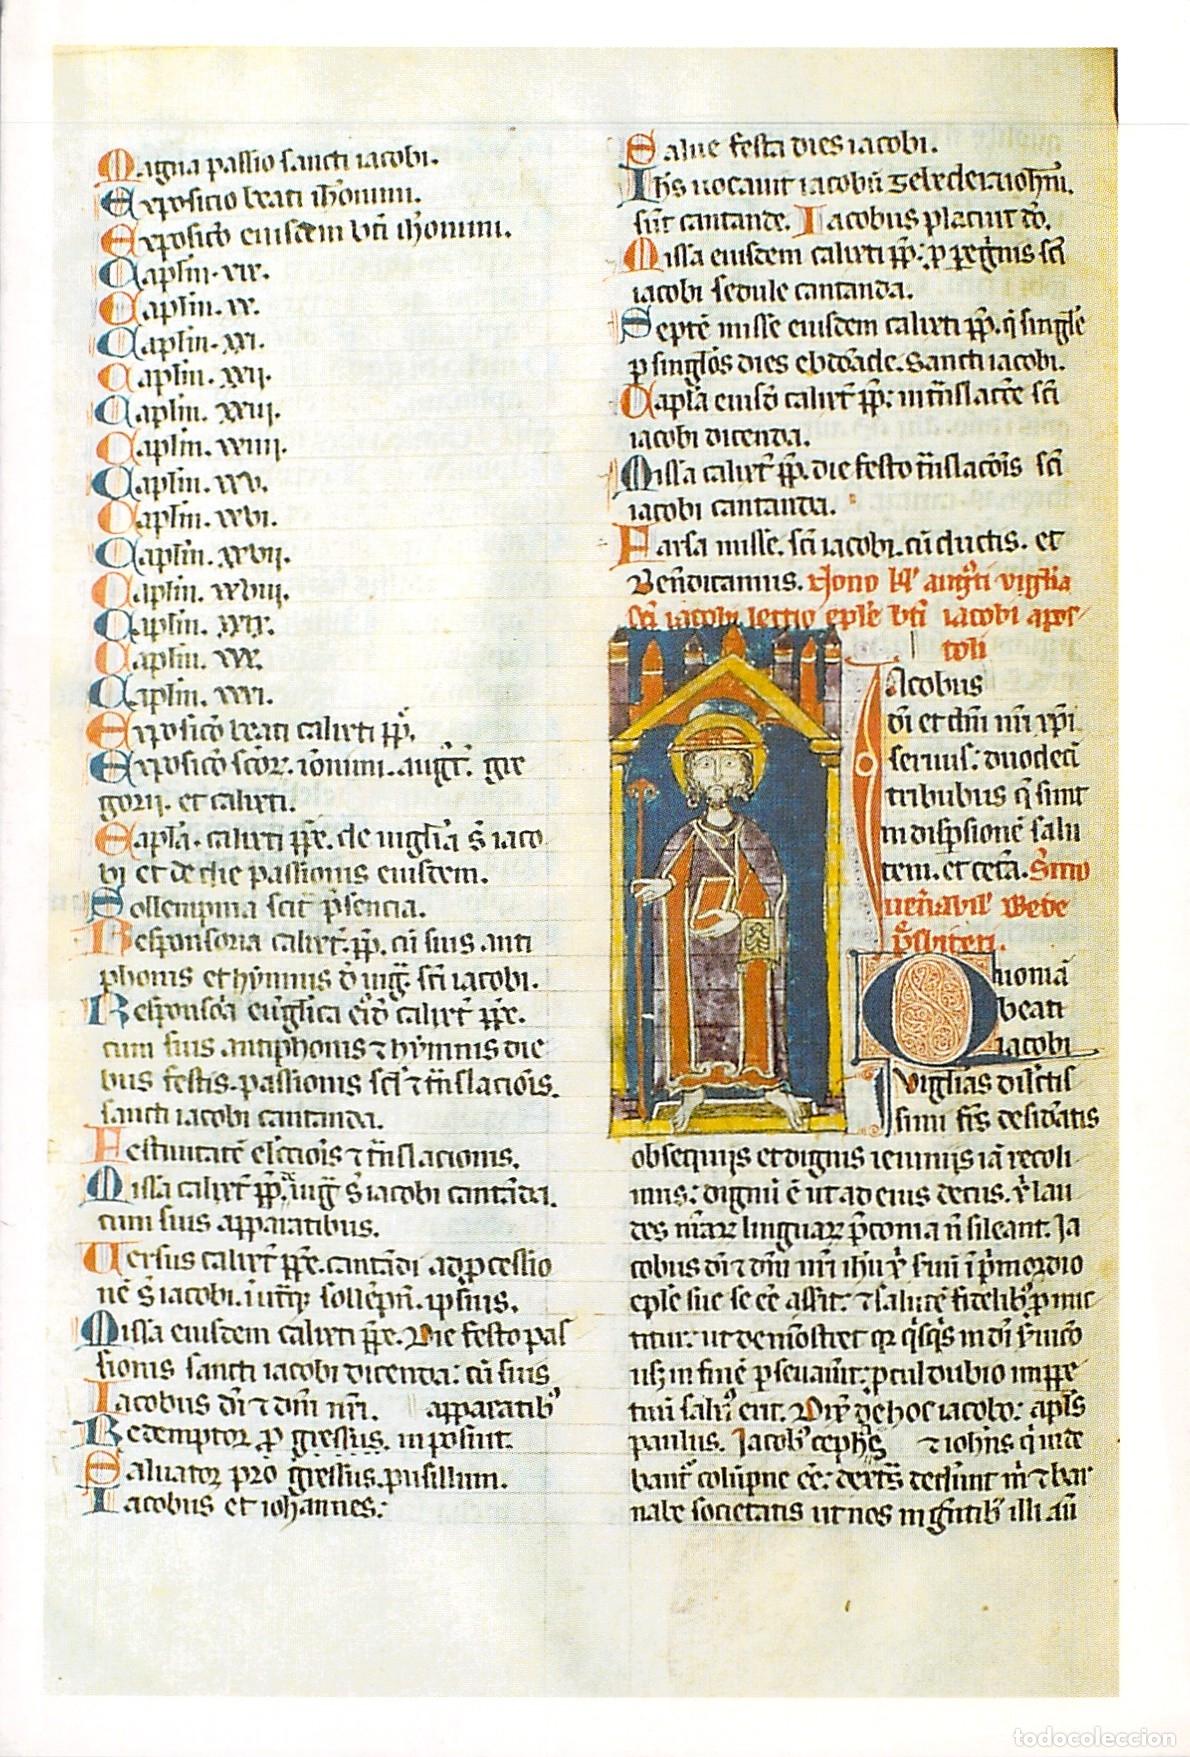 Magna passio sancti iacobi.
Exposicio beati ihonimi.
Exposicō eiusdem bti ihonimi.
Caplm. xix.
Caplm. xx.
Caplm. xxi.
Caplm. xxij.
Caplm. xxiij.
Caplm. xxiiij.
Caplm. xxv.
Caplm. xxvi.
Caplm. xxvij.
Caplm. xxviij.
Caplm. xxix.
Caplm. xxx.
Caplm. xxxi.
Exposicō beati calixti pp.
Exposicō scōr. ionimi. augt. gre
gorij. et calixti.
Capla. calixti ppe. de uiglia s iaco
bi et de die passionis eiusdem.
Sollempnia scit psencia.
Responsoria calixt. pp. cū suis anti
phonis et hymnis d uig. sci iacobi.
Responsoa euglica eid calixt ppe.
cum suis antiphonis ⁊ hymnis die
bus festis. passionis sci ⁊ tnslaciois.
sancti iacobi cantanda.
Festiuitatē elcciois ⁊ tnslacionis.
Missa calixt pp. i uig s iacobi cantāda.
cum suis apparatibus.
Versus calixt ppe. cantādi ad pcessio
nē s iacobi. i utq; sollepn. ipsius.
Missa eiusdem calixti ppe. Die festo pas
sionis sancti iacobi dicenda: cū suis
Iacobus di ⁊ dni nri. apparatib⁹
Redemptor p gressus. in posuit.
Saluator pro gressus. pusillum.
Iacobus et iohannes:
Salue festa dies iacobi.
Ihs uocauit iacobū zebedei ⁊ iohni.
sunt cantande. Iacobus placuit dō.
Missa eiusdem calixti pp: p pegnis sci
iacobi sedule cantanda.
Septē misse eiusdem calixti pp. q single
p singlos dies ebdōade. Sancti iacobi.
Capla eiusd calixt pp: in tnslacōe sci
iacobi dicenda.
Missa calixt pp. die festo tnslacōis sci
iacobi cantanda.
Farsa misse. sci iacobi. cū ductis. et
Bendicamus. Nono kl' augsti uiglia
sci iacobi lectio eple bti iacobi apos
toli
Iacobus
di et dni nri xpi
seruus: duodecī
tribubus q sunt
in dispsionē salu
tem. et ceta. Smo
uenabil' bede
psbiteri.
Quoniā
beati
iacobi
uiglias dilctis
simi frs desidatis
obsequijs et dignis ieiunijs iā recoli
mus: dignū ē ut ad eius decus. ⁊ lau
des nrar linguar pconia n sileant. Ia
cobus di ⁊ dni nri ihu x suū i pmordio
eple sue se eē assit. ⁊ salutē fidelib⁹ p mic
titur: ut demōstret qr qsqs in di suico
usq in finē pseuaūit: pcul dubio in ppe
tuū salu⁹ erit. Dix de hoc iacobo: apls
paulus. Iacob⁹ cephas ⁊ iohns q uide
bant colūpne eē: dextas dedūnt m ⁊ bar
nabe societatis ut nos in gentib⁹ illi aū
todocoleccion